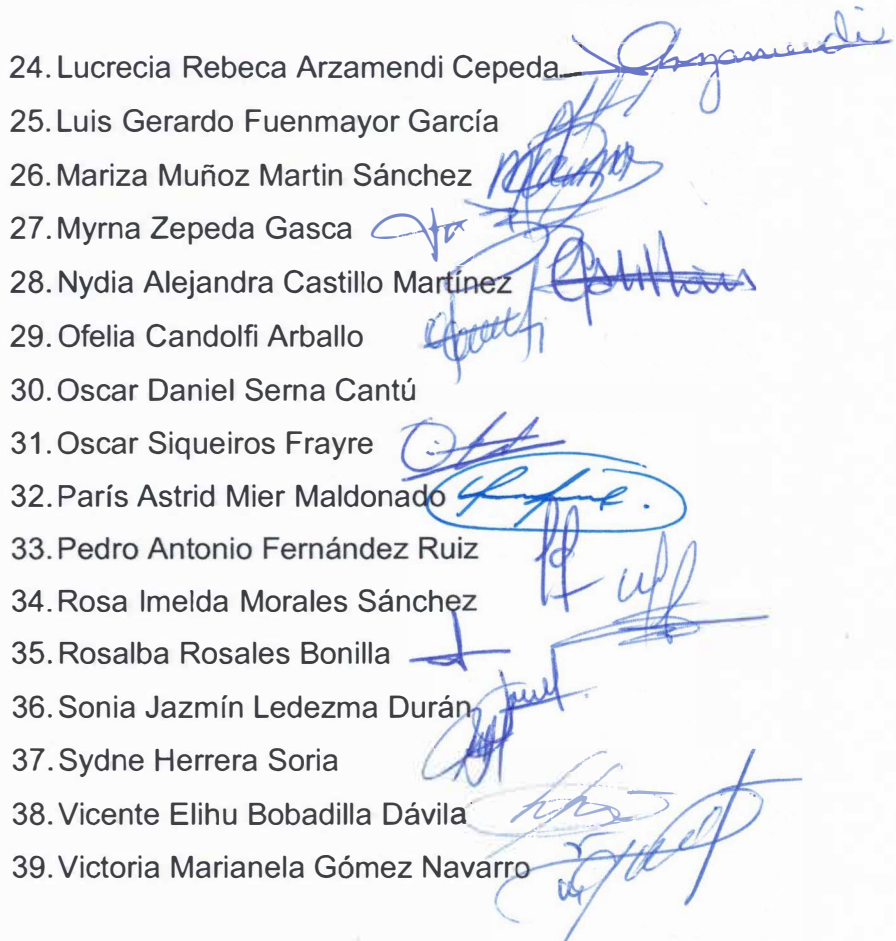 24. Lucrecia Rebeca Arzamendi Cepeda Arzamendi
25. Luis Gerardo Fuenmayor García
26. Mariza Muñoz Martin Sánchez
27. Myrna Zepeda Gasca
28. Nydia Alejandra Castillo Martínez
29. Ofelia Candolfi Arballo
30. Oscar Daniel Serna Cantú
31. Oscar Siqueiros Frayre
32. París Astrid Mier Maldonado
33. Pedro Antonio Fernández Ruiz
34. Rosa Imelda Morales Sánchez
35. Rosalba Rosales Bonilla
36. Sonia Jazmín Ledezma Durán
37. Sydne Herrera Soria
38. Vicente Elihu Bobadilla Dávila
39. Victoria Marianela Gómez Navarro